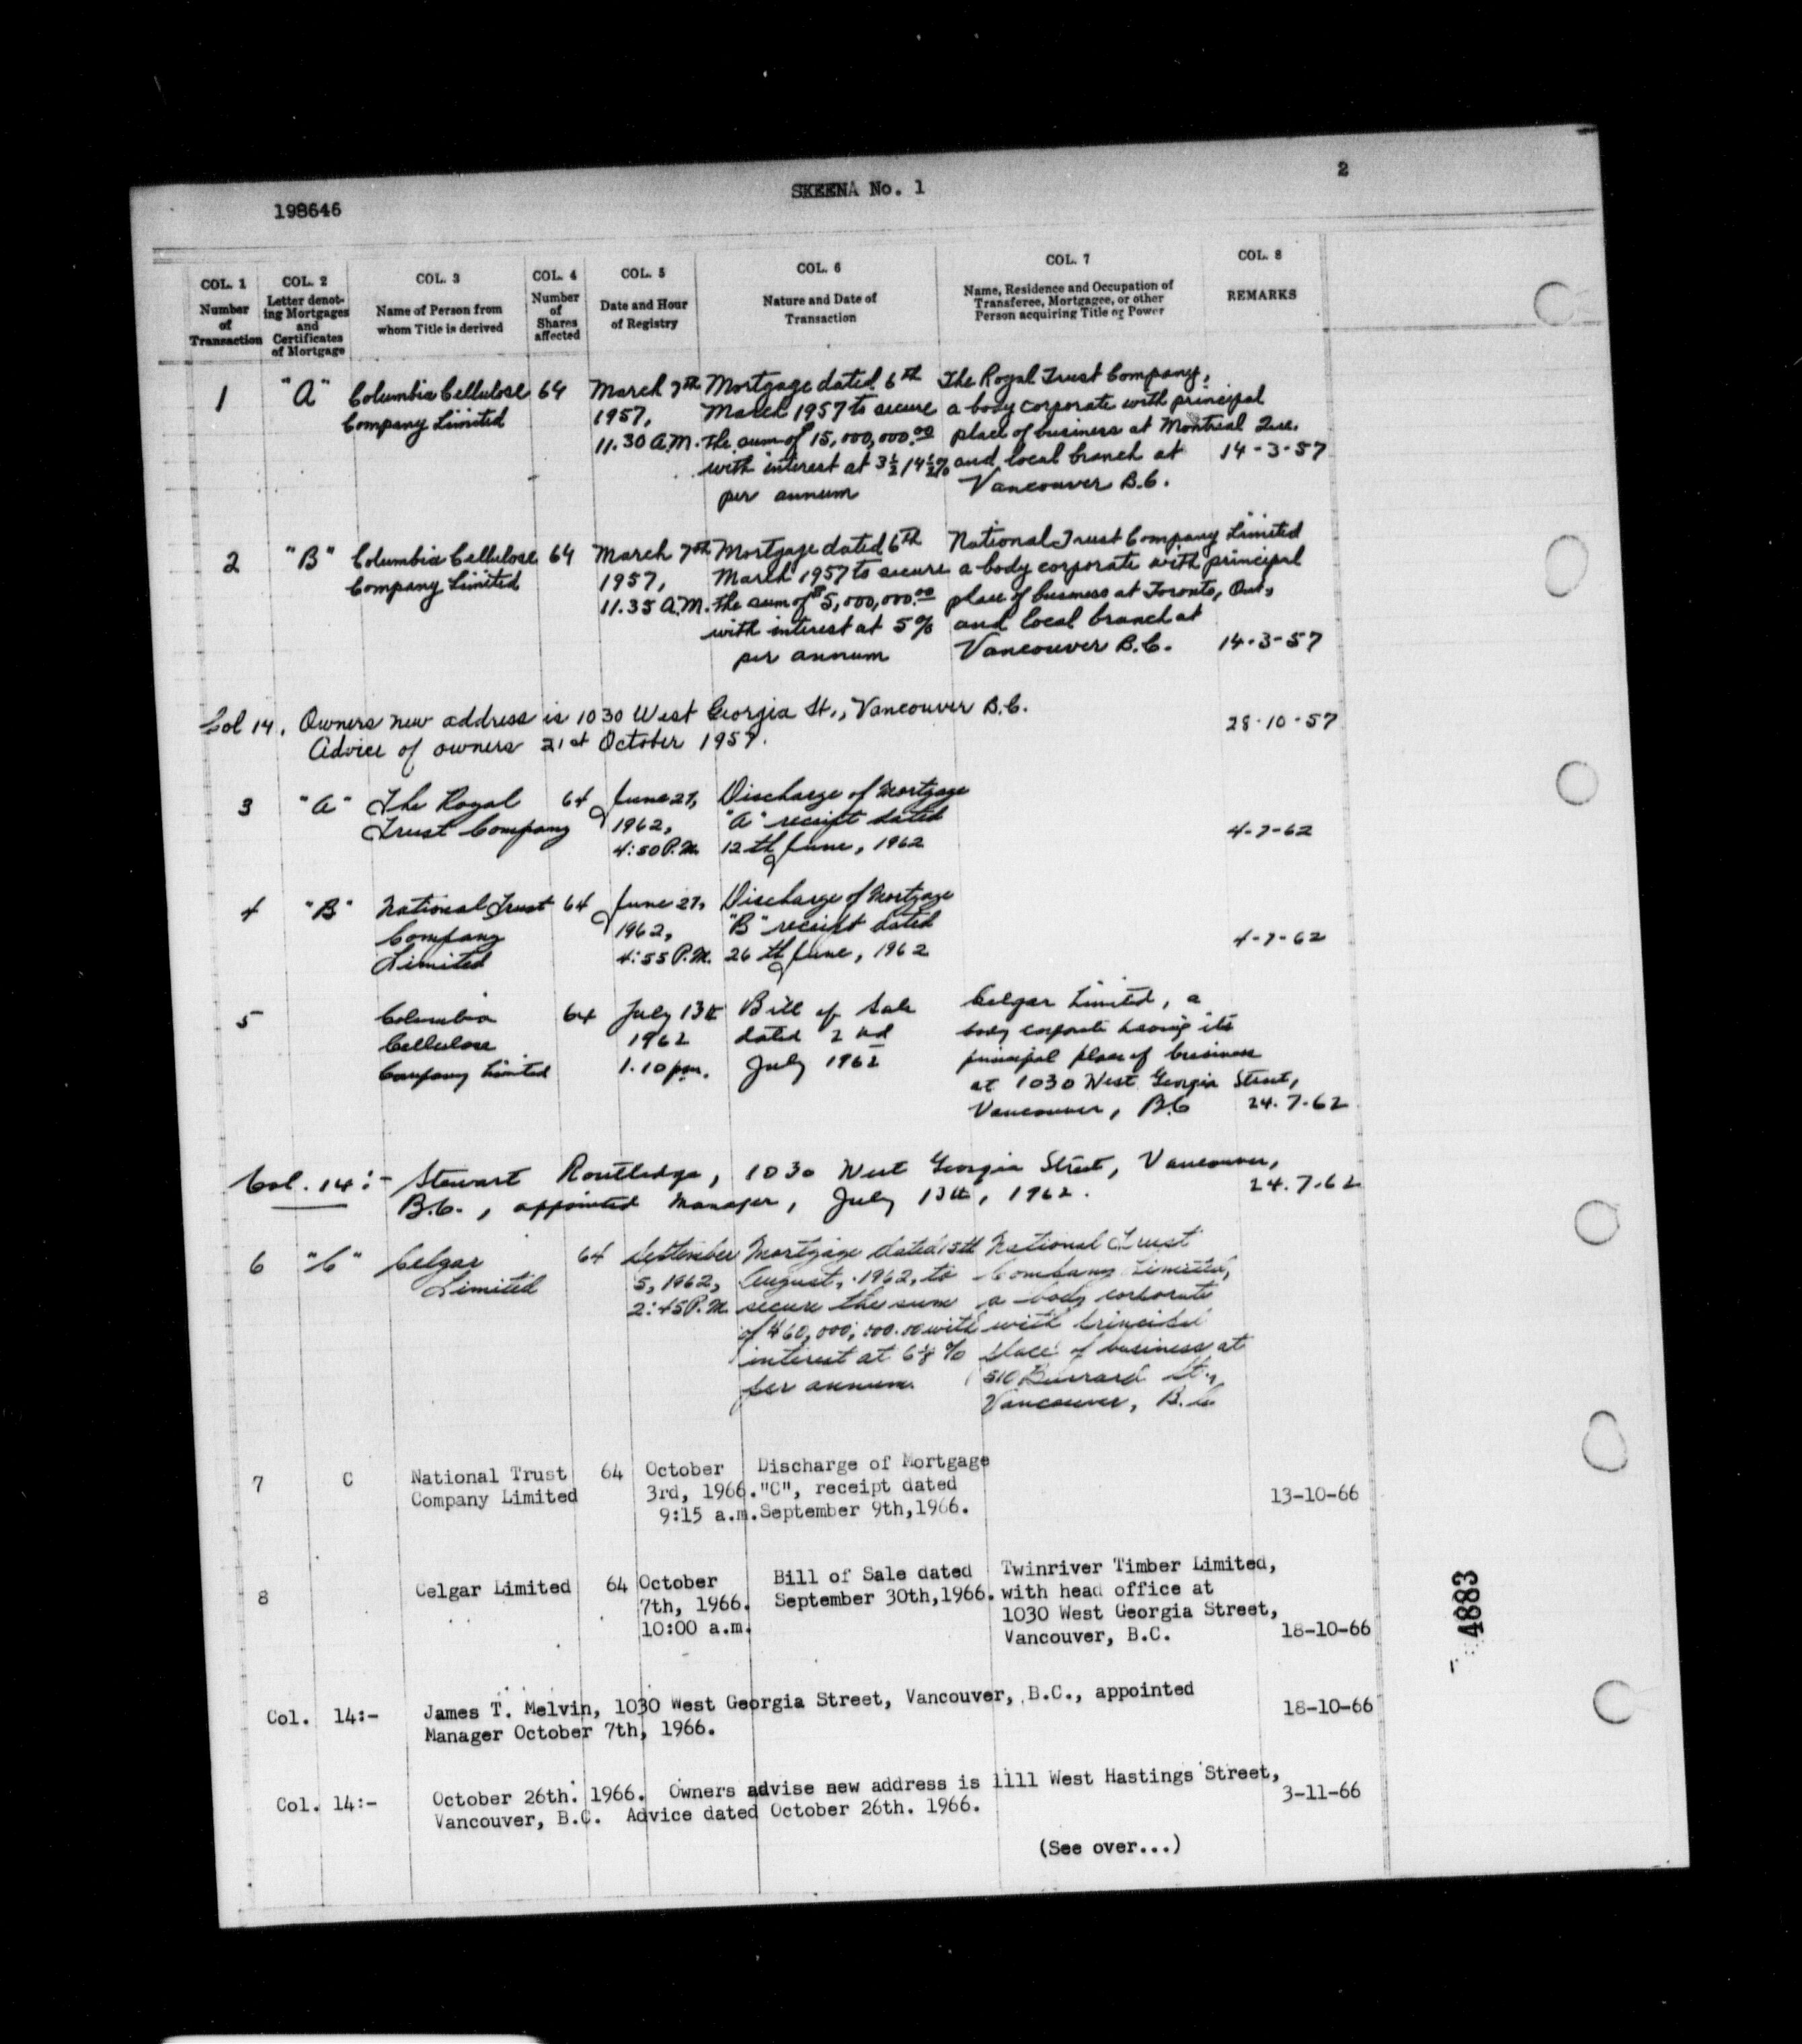 198646
SKEENA No. 1
2
COL. 1 Number of Transaction
COL. 2 Letter denoting Mortgages and Certificates of Mortgage
COL. 3 Name of Person from whom Title is derived
COL. 4 Number of Shares affected
COL. 5 Date and Hour of Registry
COL. 6 Nature and Date of Transaction
COL. 7 Name, Residence and Occupation of Transferee, Mortgagee, or other Person acquiring Title or Power
COL. 8 REMARKS
1 "A" Columbia Cellulose 64 March 7th Mortgage dated 6th The Royal Trust Company,
Company Limited 1957, March 1957 to secure a body corporate with principal
11.30 A.M. the sum of $15,000,000.00 place of business at Montreal Que.
with interest at 3½/4½% and local branch at 14-3-57
per annum Vancouver B.C.
2 "B" Columbia Cellulose 64 March 7th Mortgage dated 6th National Trust Company Limited
Company Limited 1957, March 1957 to secure a body corporate with principal
11.35 A.M. the sum of $5,000,000.00 place of business at Toronto, Ont,
with interest at 5% and local branch at
per annum Vancouver B.C. 14-3-57
Col 14. Owners new address is 1030 West Georgia St., Vancouver B.C.
Advice of owners 21st October 1957. 28-10-57
3 "A" The Royal 64 June 27, Discharge of Mortgage
Trust Company 1962, "A" receipt dated 4-7-62
4:50 P.M. 12th June, 1962
4 "B" National Trust 64 June 27, Discharge of Mortgage
Company 1962, "B" receipt dated 4-7-62
Limited 4:55 P.M. 26th June, 1962
5 Columbia 64 July 13th Bill of Sale Celgar Limited, a
Cellulose 1962 dated 2nd body corporate having its
Company Limited 1.10 pm. July 1962 principal place of business
at 1030 West Georgia Street,
Vancouver, B.C 24.7.62
Col. 14:- Stewart Routledge, 1030 West Georgia Street, Vancouver,
B.C., appointed Manager, July 13th, 1962. 24.7.62
6 "C" Celgar 64 September Mortgage dated 15th National Trust
Limited 5, 1962, August, 1962, to Company Limited,
2:45 P.M. secure the sum a body corporate
of $60,000,000.00 with with principal
interest at % place of business at
per annum. 510 Burrard St.,
Vancouver, B.C.
7 C National Trust 64 October Discharge of Mortgage
Company Limited 3rd, 1966. "C", receipt dated 13-10-66
9:15 a.m. September 9th,1966.
8 Celgar Limited 64 October Bill of Sale dated Twinriver Timber Limited,
7th, 1966. September 30th,1966. with head office at
10:00 a.m. 1030 West Georgia Street,
Vancouver, B.C. 18-10-66
Col. 14:- James T. Melvin, 1030 West Georgia Street, Vancouver, B.C., appointed
Manager October 7th, 1966. 18-10-66
Col. 14:- October 26th. 1966. Owners advise new address is 1111 West Hastings Street,
Vancouver, B.C. Advice dated October 26th. 1966. 3-11-66
(See over...)
4883